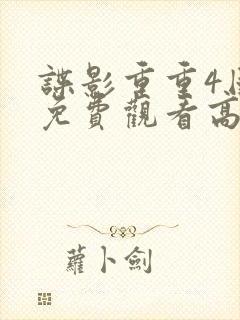 諜影重重4
免費觀看高
蘿卜劍